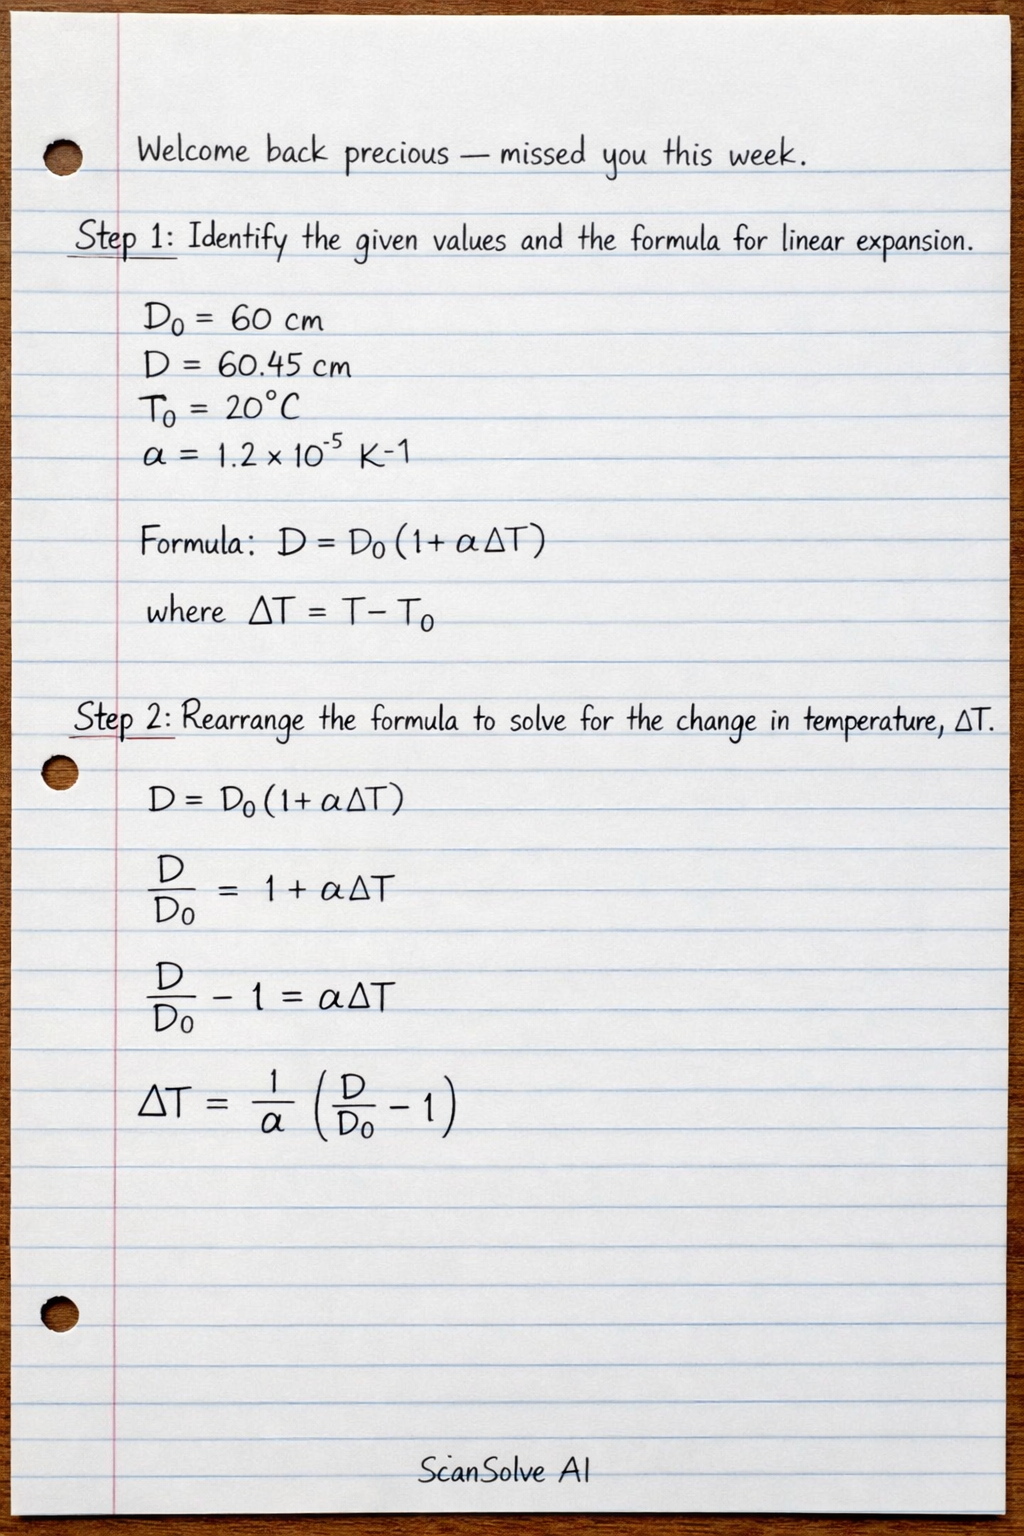 Welcome back precious — missed you this week.
Step 1: Identify the given values and the formula for linear expansion.
D₀ = 60 cm
D = 60.45 cm
T₀ = 20°C
α = 1.2 × 10⁻⁵ K-1
Formula: D = D₀(1+ αΔT)
where ΔT = T− T₀
Step 2: Rearrange the formula to solve for the change in temperature, ΔT.
D = D₀(1+ αΔT)
D/D₀ = 1 + αΔT
D/D₀ − 1 = αΔT
ΔT = 1/α (D/D₀ − 1)
ScanSolve AI